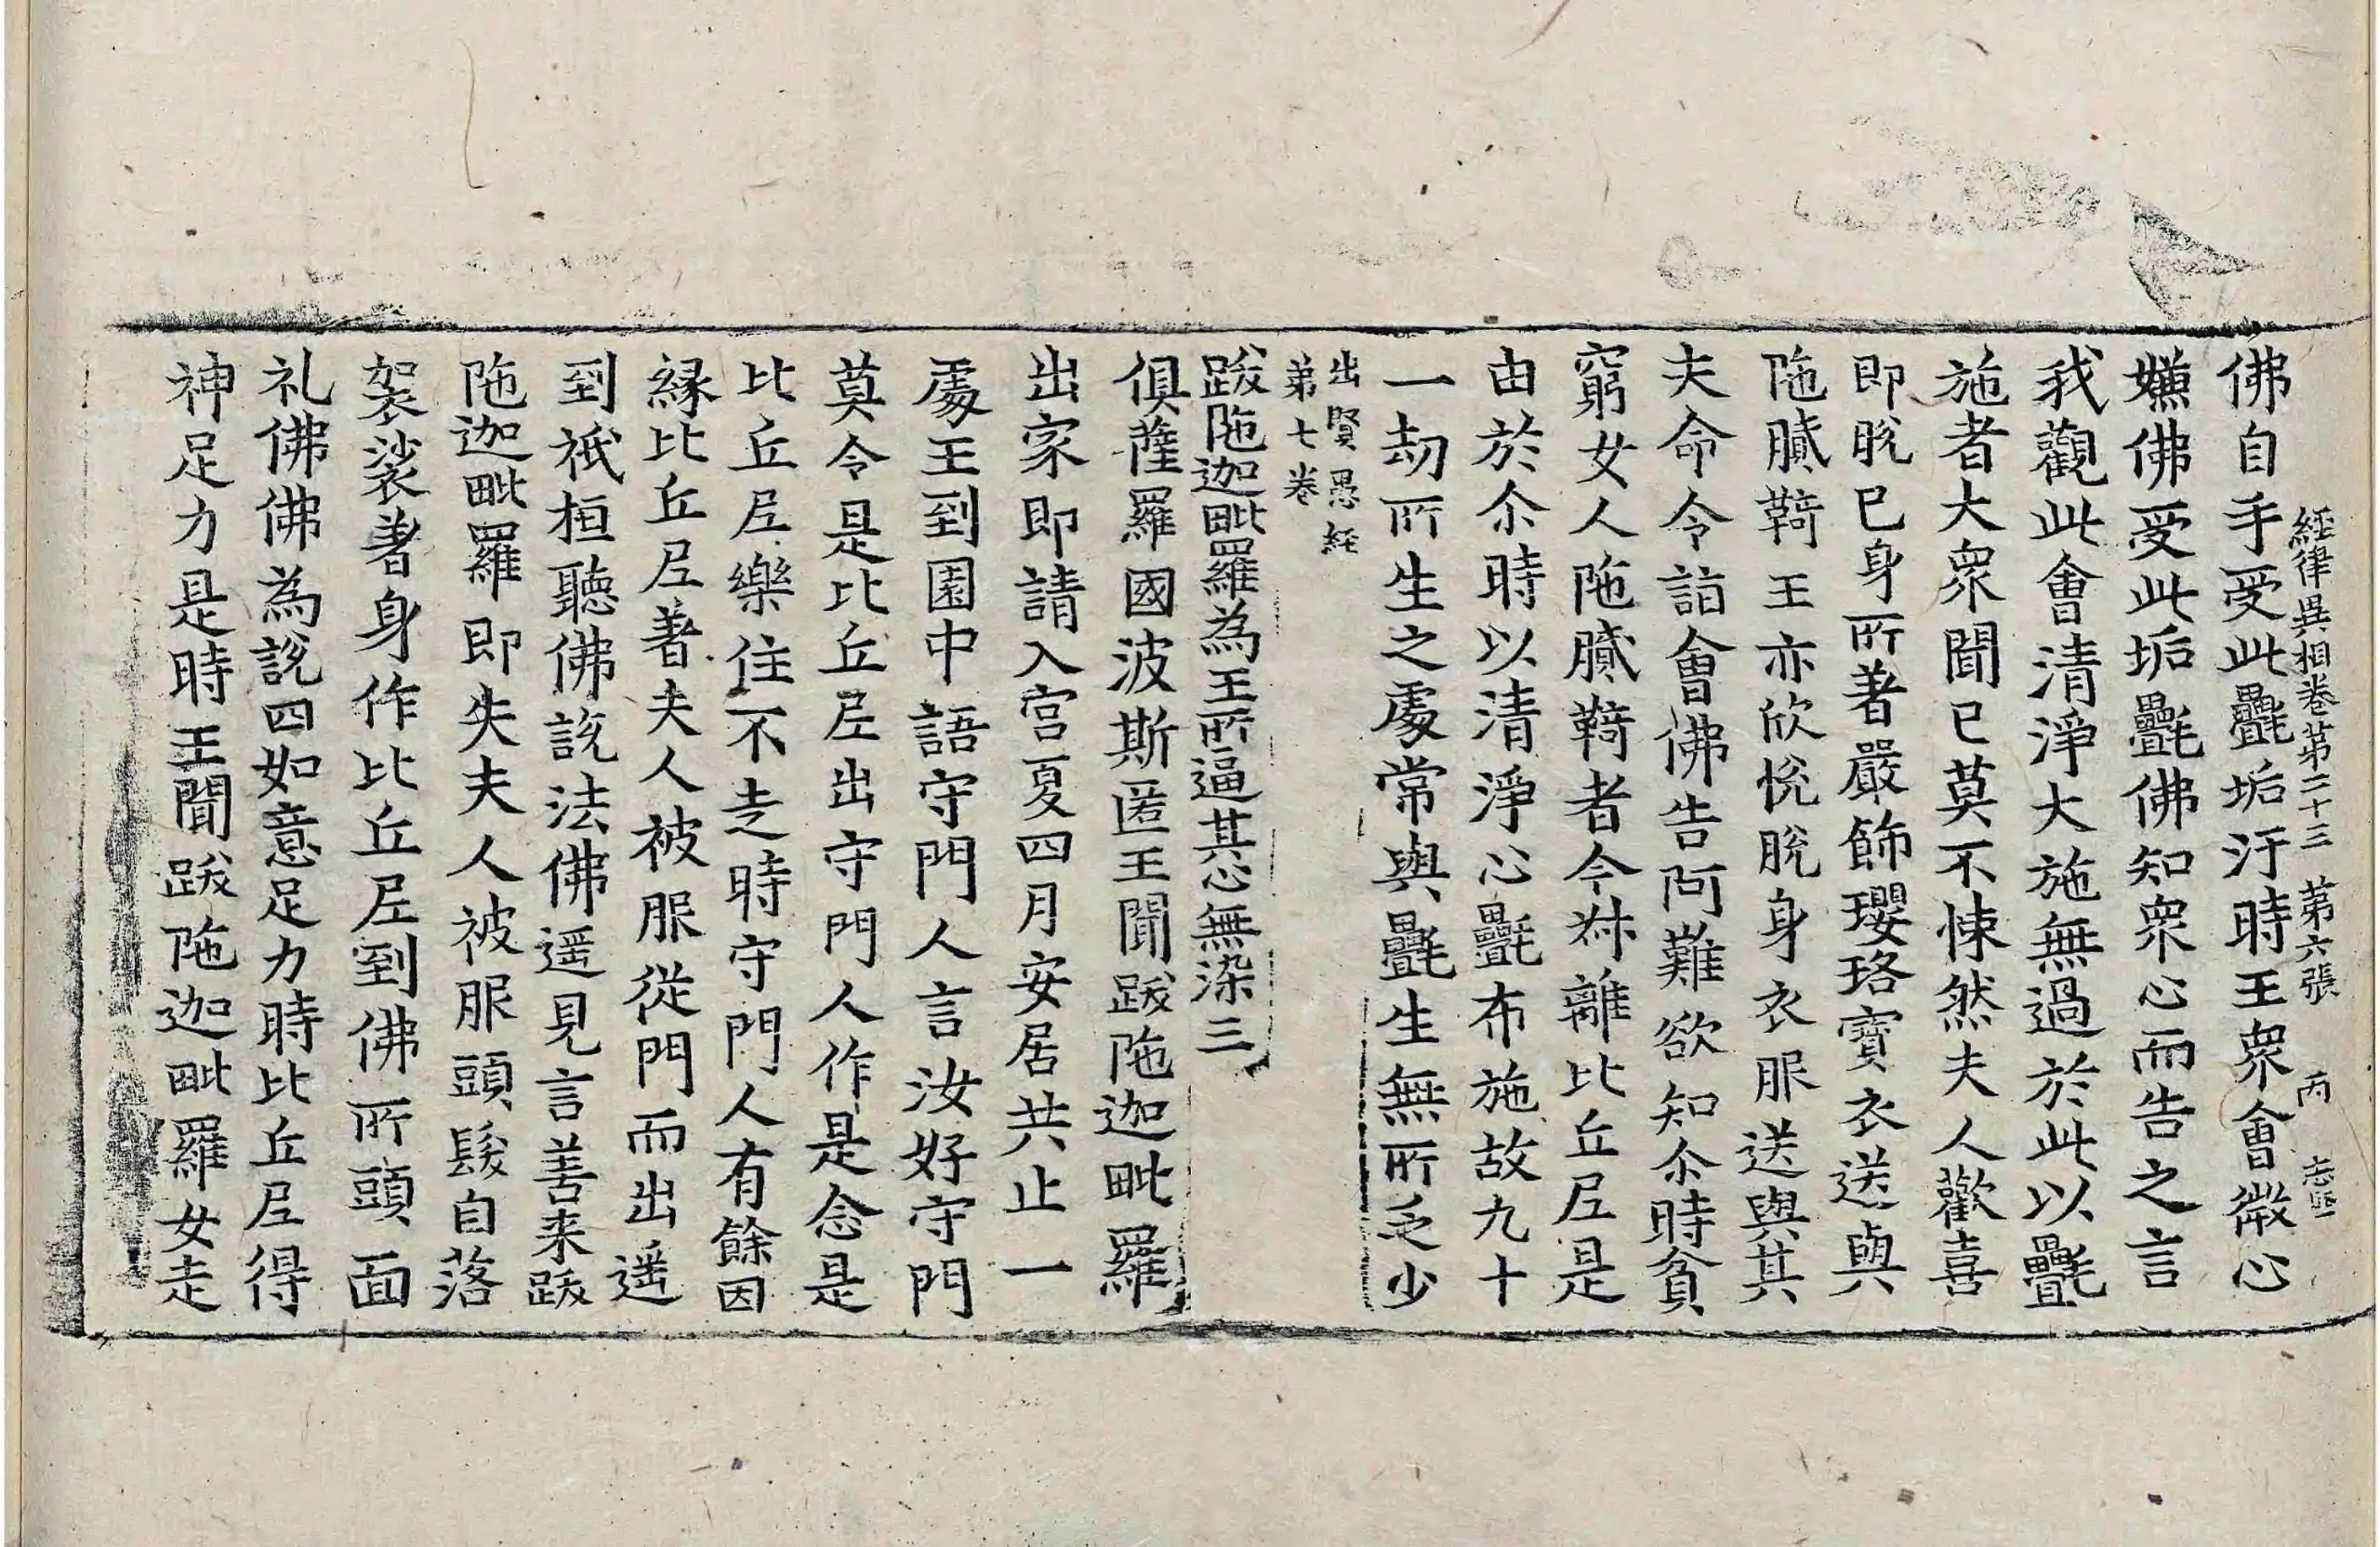 經律異相卷第二十三 第六張 丙
佛自手受此㲲垢汙時王衆會微心
嫌佛受此垢㲲佛知衆心而告之言
我觀此會清淨大施無過於此以㲲
施者大衆聞已莫不悚然夫人歡喜
即脫已身所著嚴飾瓔珞寶衣送與
陁膩䩭王亦欣悅脫身衣服送與其
夫命令詣會佛告阿難欲知尒時貧
窮女人陁膩䩭者今叔離比丘尼是
由於尒時以清淨心㲲布施故九十
一劫所生之處常與㲲生無所乏少
出賢愚經
第七卷
跋陁迦毗羅為王所逼其心無染三
俱薩羅國波斯匿王聞跋陁迦毗羅
出家即請入宮夏四月安居共止一
處王到園中語守門人言汝好守門
莫令是比丘尼出守門人作是念是
比丘尼樂住不走時守門人有餘因
縁比丘尼著夫人被服從門而出遥
到祇桓聽佛說法佛遥見言善来跋
陁迦毗羅即失夫人被服頭髮自落
袈裟著身作比丘尼到佛所頭面
礼佛佛為說四如意足力時比丘尼得
神足力是時王聞跋陁迦毗羅女走